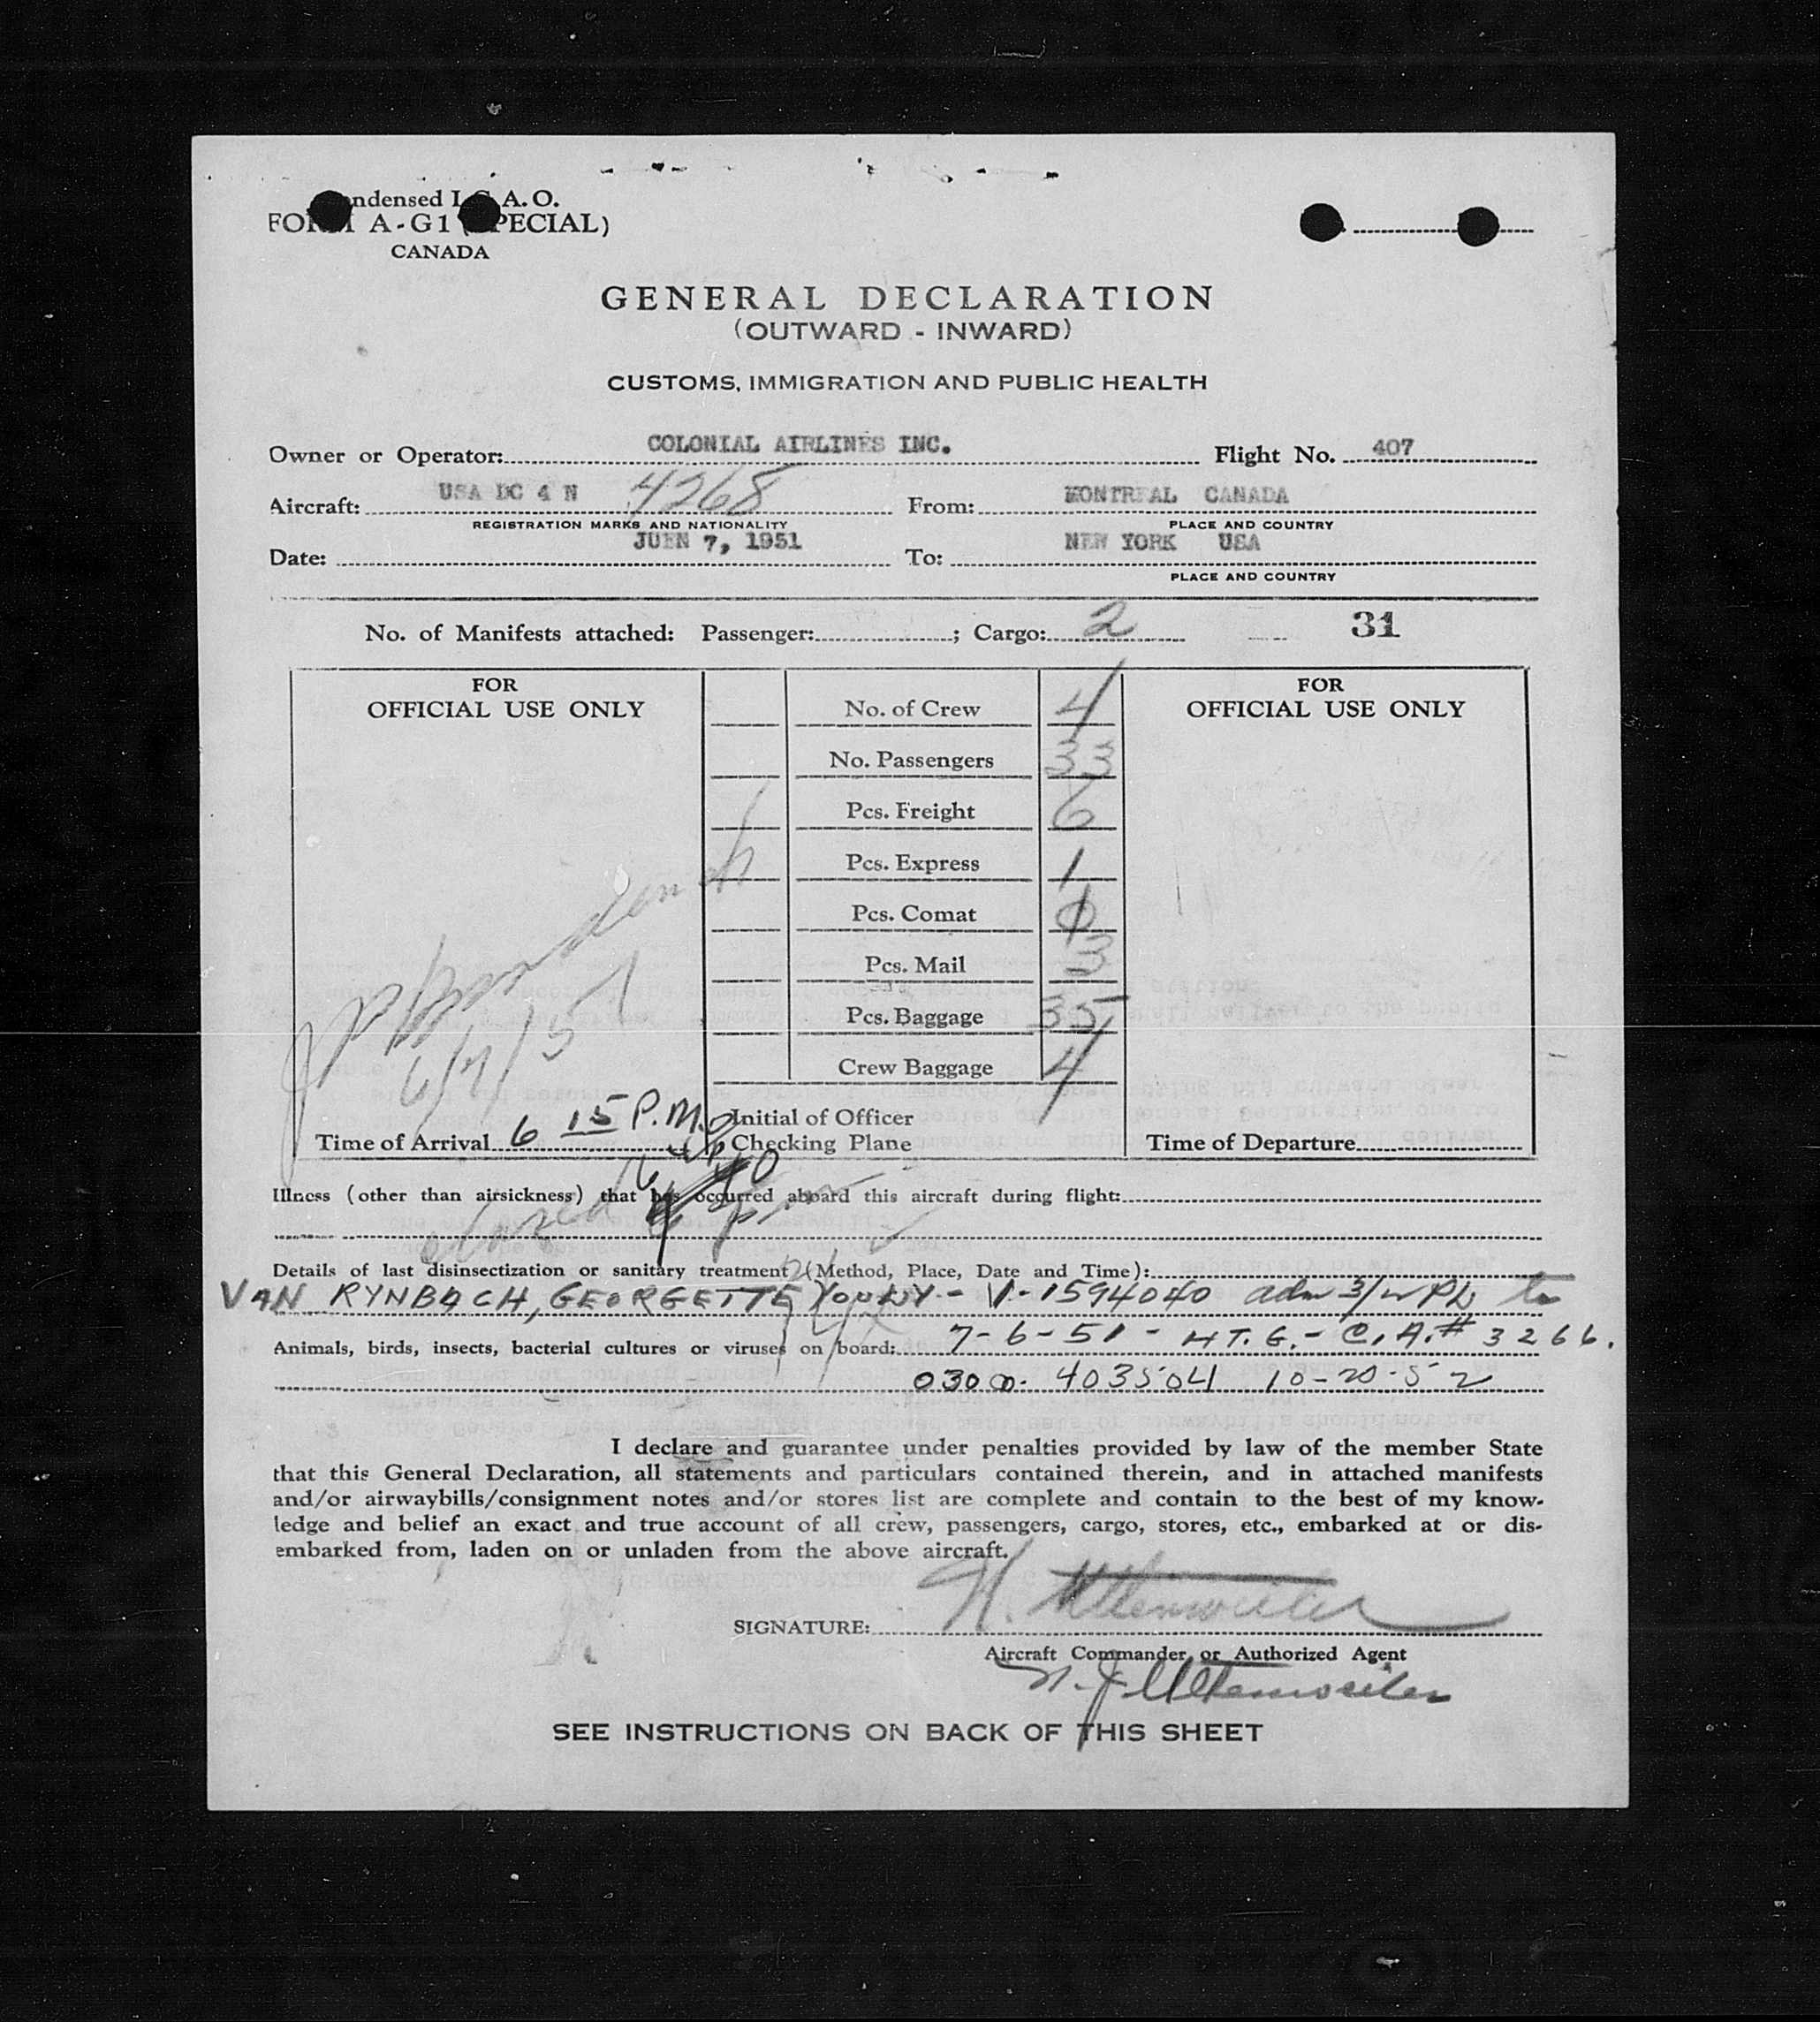 ndensed I. C. A. O.
FORM A-G1 (SPECIAL)
CANADA
GENERAL DECLARATION
(OUTWARD - INWARD)
CUSTOMS, IMMIGRATION AND PUBLIC HEALTH
Owner or Operator: COLONIAL AIRLINES INC. Flight No. 407
Aircraft: USA DC 4 N 4268 From: MONTREAL CANADA
REGISTRATION MARKS AND NATIONALITY PLACE AND COUNTRY
Date: JUEN 7, 1951 To: NEW YORK USA
PLACE AND COUNTRY
No. of Manifests attached: Passenger: ; Cargo: 2 31
FOR OFFICIAL USE ONLY
No. of Crew 4
No. Passengers 33
Pcs. Freight 6
Pcs. Express 1
Pcs. Comat 0
Pcs. Mail 3
Pcs. Baggage 35
Crew Baggage 4
FOR OFFICIAL USE ONLY
6/7/51
Time of Arrival 6 15 P.M. Initial of Officer Checking Plane Time of Departure
Illness (other than airsickness) that has occurred aboard this aircraft during flight:
Details of last disinsectization or sanitary treatment (Method, Place, Date and Time):
VAN RYNBACH, GEORGETTE - V-1594040 adm 3/2 to
Animals, birds, insects, bacterial cultures or viruses on board: 7-6-51 - HT. G. - C. A. # 3266.
0300- 4035041 10-20-52
I declare and guarantee under penalties provided by law of the member State
that this General Declaration, all statements and particulars contained therein, and in attached manifests
and/or airwaybills/consignment notes and/or stores list are complete and contain to the best of my know-
ledge and belief an exact and true account of all crew, passengers, cargo, stores, etc., embarked at or dis-
embarked from, laden on or unladen from the above aircraft.
SIGNATURE:
Aircraft Commander or Authorized Agent
SEE INSTRUCTIONS ON BACK OF THIS SHEET